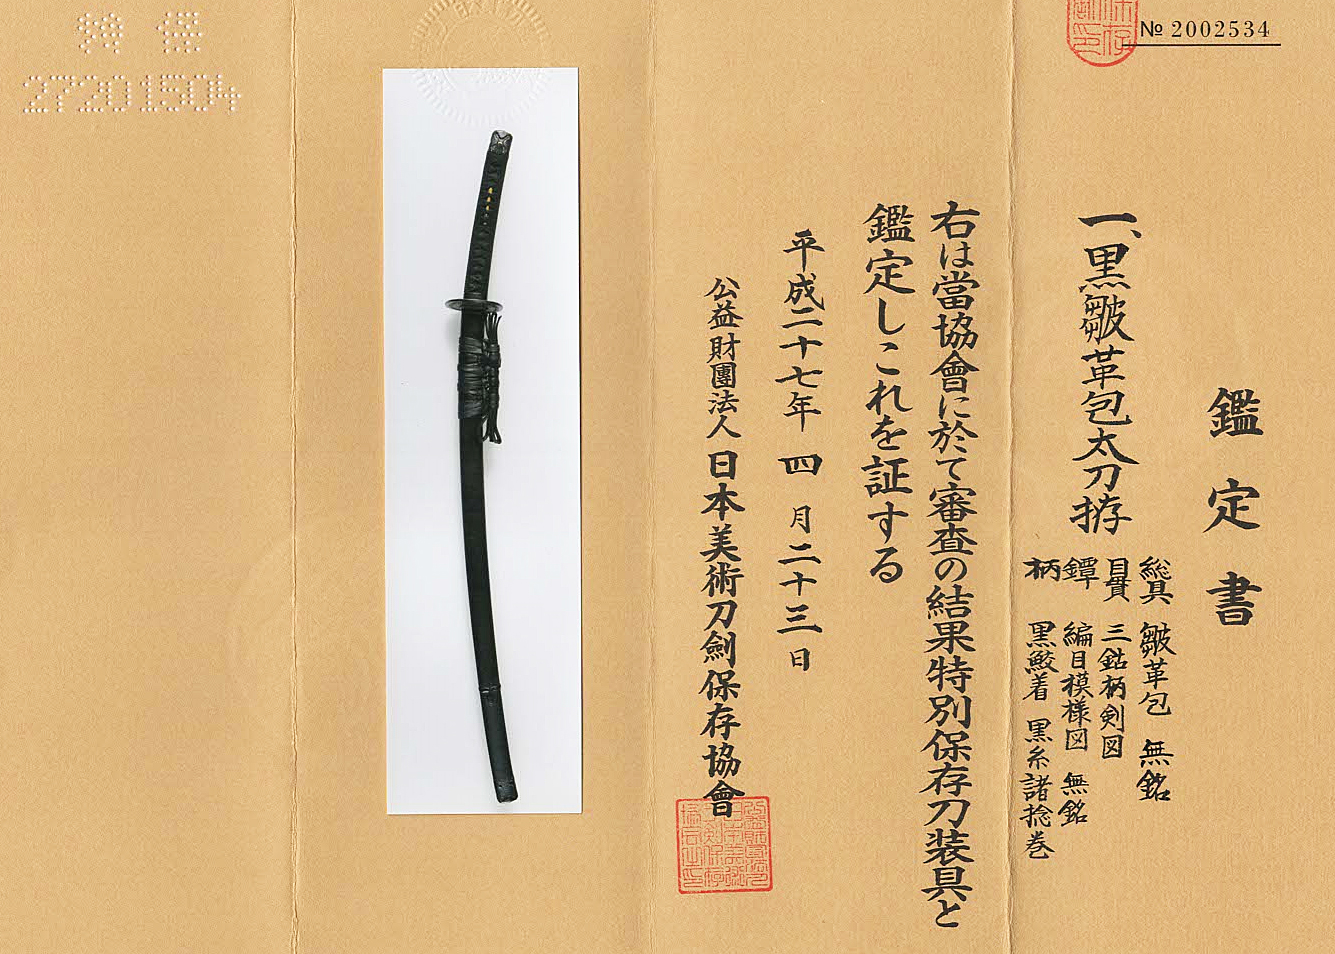 № 2002534
鑑定書
一、黒皺革包太刀拵
総具 皺革包 無銘
目貫 三鈷柄剣図
鐔 編目模様図 無銘
柄 黒鮫着 黒糸諸捻巻
右は當協會に於て審査の結果特別保存刀装具と
鑑定しこれを証する
平成二十七年 四 月二十三日
公益財團法人 日本美術刀劍保存協會
特 保
27201504